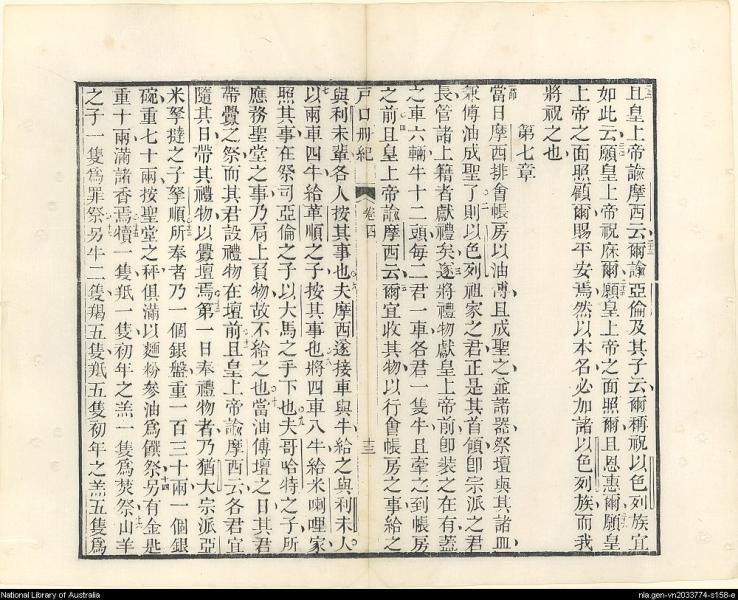 且皇上帝諭摩西云爾諭亞倫及其子云爾稱祝以色列族宜
如此云願皇上帝祝庥爾願皇上帝之面照爾且恩惠爾願皇
上帝之面照顧爾賜平安焉然以本名必加諸以色列族而我
將祝之也
第七章
當日摩西排會帳房以油傅且成聖之並諸器祭壇與其諸皿
兼傅油成聖了則以色列祖家之君正是其首領卽宗派之君
長管諸上籍者獻禮矣遂將禮物獻皇上帝前卽裝之在有蓋
之車六輛牛十二頭每二君一車各君一隻牛且牽之到帳房
之前且皇上帝諭摩西云爾宜收其物以行會帳房之事給之
戶口冊紀 卷四 十三
與利未輩各人按其事也夫摩西遂接車與牛給之與利未人
以兩車四牛給革順之子按其事也將四車八牛給米喇哩家
照其事在祭司亞倫之子以大馬之手下也夫哥哈特之子所
應務聖堂之事乃肩上負物故不給之也當油傅壇之日其君
帶釁之祭而其君設禮物在壇前且皇上帝諭摩西云各君宜
隨其日帶其禮物以釁壇焉第一日奉禮物者乃猶大宗派亞
米拏撻之子拏順所奉者乃一個銀盤重一百三十兩一個銀
碗重七十兩按聖堂之秤俱滿以麵粉參油爲饌祭另有金匙
重十兩滿諸香焉犢一隻羝一隻初年之羔一隻爲焚祭山羊
之子一隻爲罪祭另牛二隻羯五隻羝五隻初年之羔五隻爲
National Library of Australia
nla.gen-vn2033774-s158-e